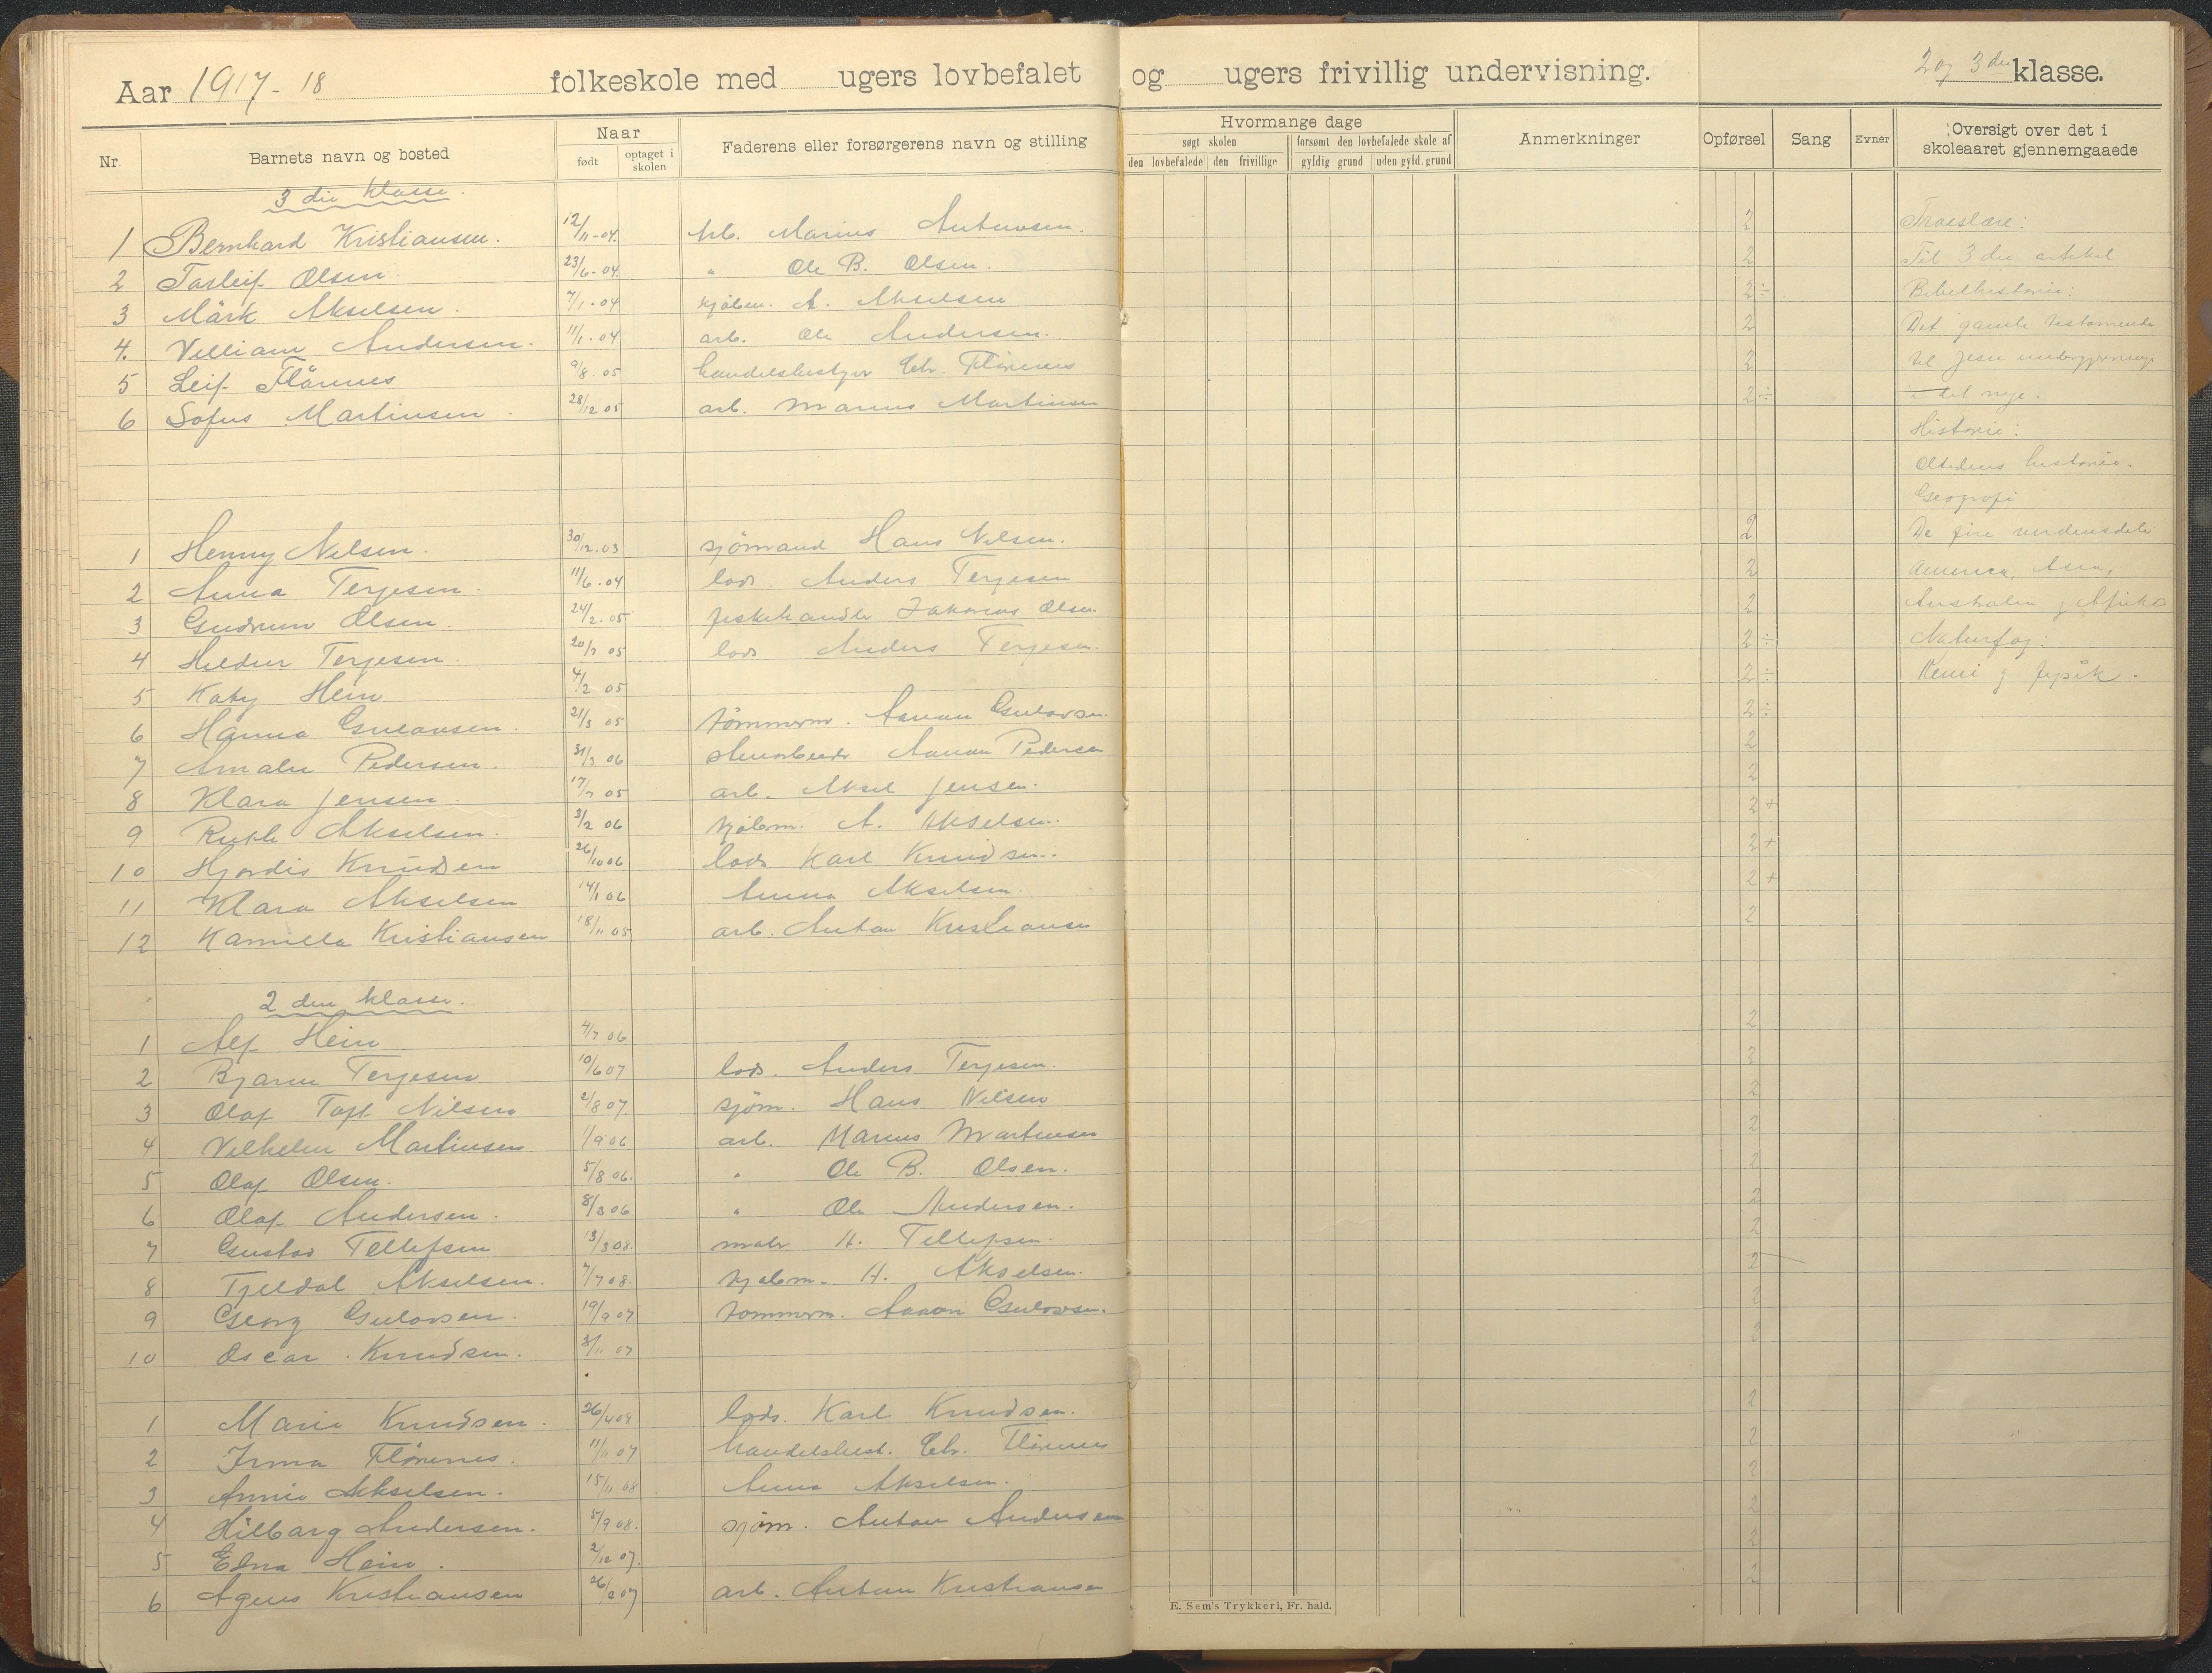 Aar 1917-18 folkeskole med ugers lovbefalet og ugers frivillig undervisning. 2 og 3die klasse.
Nr. Barnets navn og bosted Naar født optaget i skolen Faderens eller forsørgerens navn og stilling Hvormange dage søgt skolen den lovbefalede den frivillige forsømt den lovbefalede skole af gyldig grund uden gyld. grund Anmerkninger Opførsel Sang Evner Oversigt over det i skoleaaret gjennemgaaede
3 die klasse.
1 Bernhard Kristiansen. 12/11-04. Marius 2 Troeslære:
2 Torleif Olsen 23/6-04. " Ole B. Olsen. 2 Til 3 die artikel
3 Märk Akselsen. 7/1-04 kjøbm. A. Akselsen 2÷ Bibelhistorie:
4. Villiam Andersen. 11/1-04 arb. Ole Andersen. 2 Det gamle testamente
5 Leif Flörnes 9/8-05 handelsbestyr Chr. Flörenes 2 til Jesu undergjerninger
6 Sofus Martinsen. 28/12 05 arb. Marius Martinsen 2÷ i det nye.
Historie:
Oldtidens historie.
Geografi
1 Henny Nilsen. 30/12.03 sjömand Hans Nilsen. 2 De fire verdensdele
2 Anna Terjesen. 11/6.04 lods. Anders Terjesen 2 America, Asia,
3 Gudrun Olsen. 24/2.05 fiskehandler Olsen. 2 Australia og Afrika
4 Hildur Terjesen. 20/7 05 lods Anders Terjesen. 2÷ Naturfag:
5 Katy Hein 4/2 05 2÷ Kemi og fysik.
6 Hanna Gulovsen. 21/3 05 tömmerm. Aanon Gulovsen. 2÷
7 Amalie Pedersen. 31/3 06 Aanon Pedersen 2
8 Klara Jensen. 17/7 05 arb. Aksel Jensen. 2
9 Ruth Akselsen. 3/2 06 kjøbm. A. Akselsen. 2+
10 Hjordis Knudsen 26/10 06 lods Karl Knudsen. 2+
11 Klara Akselsen 14/1 06 Anna Akselsen. 2+
12 Kamilla Kristiansen 18/11 05 arb. Anton Kristiansen 2
2 den klasse.
1 Alf Hein 4/7 06 2
2 Bjarne Terjesen 10/6 07 lods. Anders Terjesen. 3
3 Olaf Toft Nilsen 2/8 07 sjöm. Hans Nilsen 2
4 Vilhelm Martinsen 1/9 06 arb. Marius Martinsen 2
5 Olaf Olsen. 5/8 06. " Ole B. Olsen. 2
6 Olaf Andersen. 8/3 06 " Ole Andersen. 2
7 Gustav Tellefsen 13/3 08. maler A. Tellefsen. 2
8 Tjeldal Akselsen. 7/7 08. kjøbm. A. Akselsen. 2
9 Georg Gulovsen. 19/9 07 tömmerm. Aanon Gulovsen. 2
10 Oscar Knudsen. 3/11 07 2
1 Marie Knudsen. 26/4 08 lods. Karl Knudsen. 2
2 Irma Flörenes. 11/11 07 handelsbest. Chr. Flörenes 2
3 Annie Akselsen. 15/11 08 Anna Akselsen. 2
4 Hilbarg Andersen. 5/9 08. sjöm. Anton Andersen 2
5 Edna Hein. 2/12 07. 2
6 Agnes Kristiansen 26/8 07 arb. Anton Kristiansen 2
E. Sem's Trykkeri, Fr. hald.